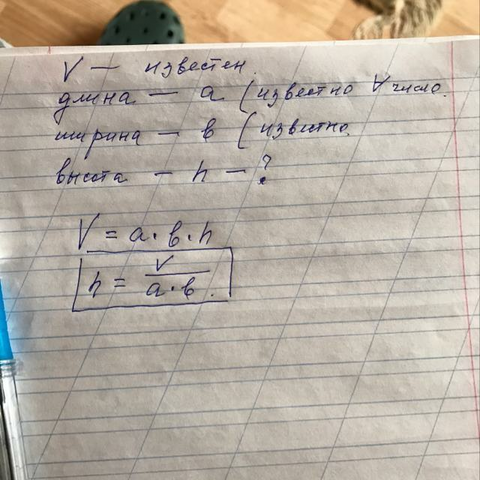 V — известен.
длина — a (известно ∀ число.
ширина — в (известно.
высота — h — ?
V = a · в · h
h = V / a · в.